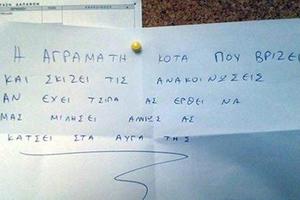 Η ΑΓΡΑΜΑΤΗ ΚΟΤΑ ΠΟΥ ΒΡΙΖΕΙ
ΚΑΙ ΣΚΙΖΕΙ ΤΙΣ ΑΝΑΚΟΙΝΩΣΕΙΣ
ΑΝ ΕΧΕΙ ΤΣΙΠΑ ΑΣ ΕΡΘΕΙ ΝΑ
ΜΑΣ ΜΙΛΗΣΕΙ ΑΛΛΙΩΣ ΑΣ
ΚΑΤΣΕΙ ΣΤΑ ΑΥΓΑ ΤΗΣ